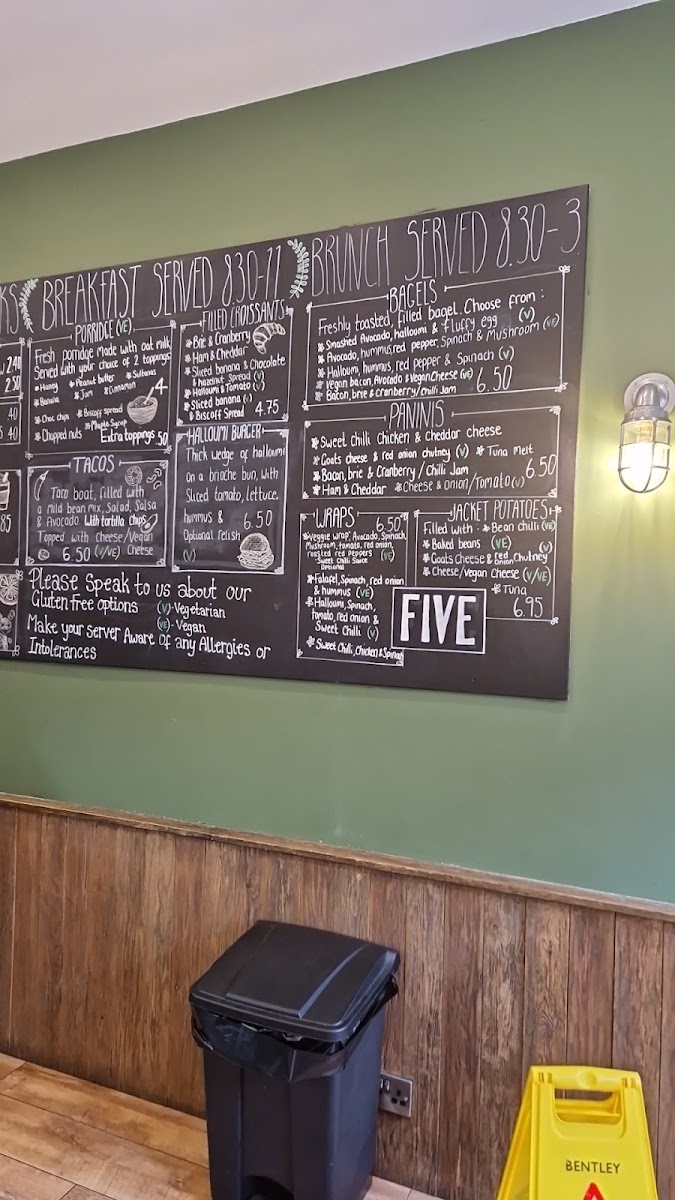 KS
2.40
2.50
.40
.40
.85
BREAKFAST SERVED 8.30-11
PORRIDGE (VE)
Fresh porridge made with oat milk
Served with your choice of 2 toppings
* Honey * Peanut butter * Sultanas
* Banana * Jam * Cinnamon
4
* Choc chips * Biscoff spread
* Maple Syrup
* Chopped nuts Extra toppings .50
FILLED CROISSANTS
* Brie & Cranberry
* Ham & Cheddar
* Sliced banana & Chocolate
& hazelnut Spread (V)
* Halloumi & Tomato (V)
* Sliced banana (V)
& Biscoff Spread 4.75
TACOS
Taco boat, filled with
a mild bean mix, Salad, Salsa
& Avocado. With tortilla Chips
Topped with Cheese/Vegan
6.50 (V/VE) Cheese
HALLOUMI BURGER
Thick wedge of halloumi
on a brioche bun, with
Sliced tomato, lettuce,
hummus & 6.50
Optional relish
(V)
Please Speak to us about our
Gluten free options (V)-Vegetarian
(VE)-Vegan
Make your server Aware of any Allergies or
Intolerances
BRUNCH SERVED 8.30-3
BAGELS
Freshly toasted, filled bagel. Choose from :
* Smashed Avocado, halloumi & fluffy egg (V)
* Avocado, hummus, red pepper, Spinach & Mushroom (VE)
* Halloumi, hummus, red pepper & Spinach (V)
* Vegan bacon, Avocado & Vegan Cheese (VE)
* Bacon, brie & Cranberry/Chilli Jam 6.50
PANINIS
* Sweet chilli Chicken & cheddar cheese
* Goats cheese & red onion chutney (V) * Tuna melt
* Bacon, brie & Cranberry / Chilli Jam 6.50
* Ham & Cheddar * Cheese & onion/Tomato (V)
WRAPS 6.50
* 'Veggie wrap' Avocado, Spinach,
Mushroom, tomato, red onion,
roasted red Peppers (VE)
Sweet Chilli Sauce
Optional
* Falafel, Spinach, red onion
& hummus (VE)
* Halloumi, Spinach,
tomato, red onion &
Sweet Chilli (V)
* Sweet Chilli, Chicken & Spinach
JACKET POTATOES
Filled with : * Bean chilli (VE)
* Baked beans (VE)
* Goats Cheese & red onion Chutney (V)
* Cheese/Vegan Cheese (V/VE)
* Tuna
6.95
FIVE
BENTLEY